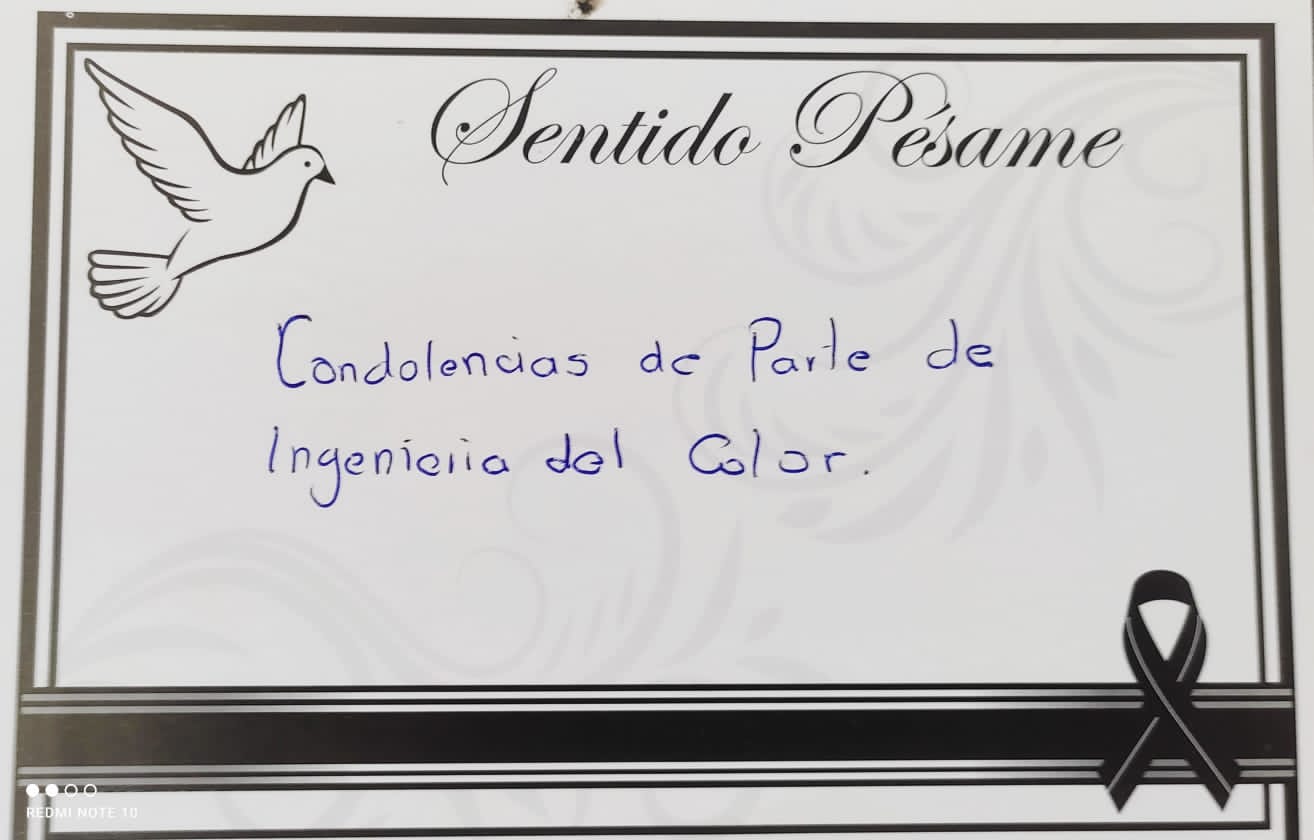 Sentido Pésame
Condolencias de Parte de
Ingenieria del Color.
REDMI NOTE 10